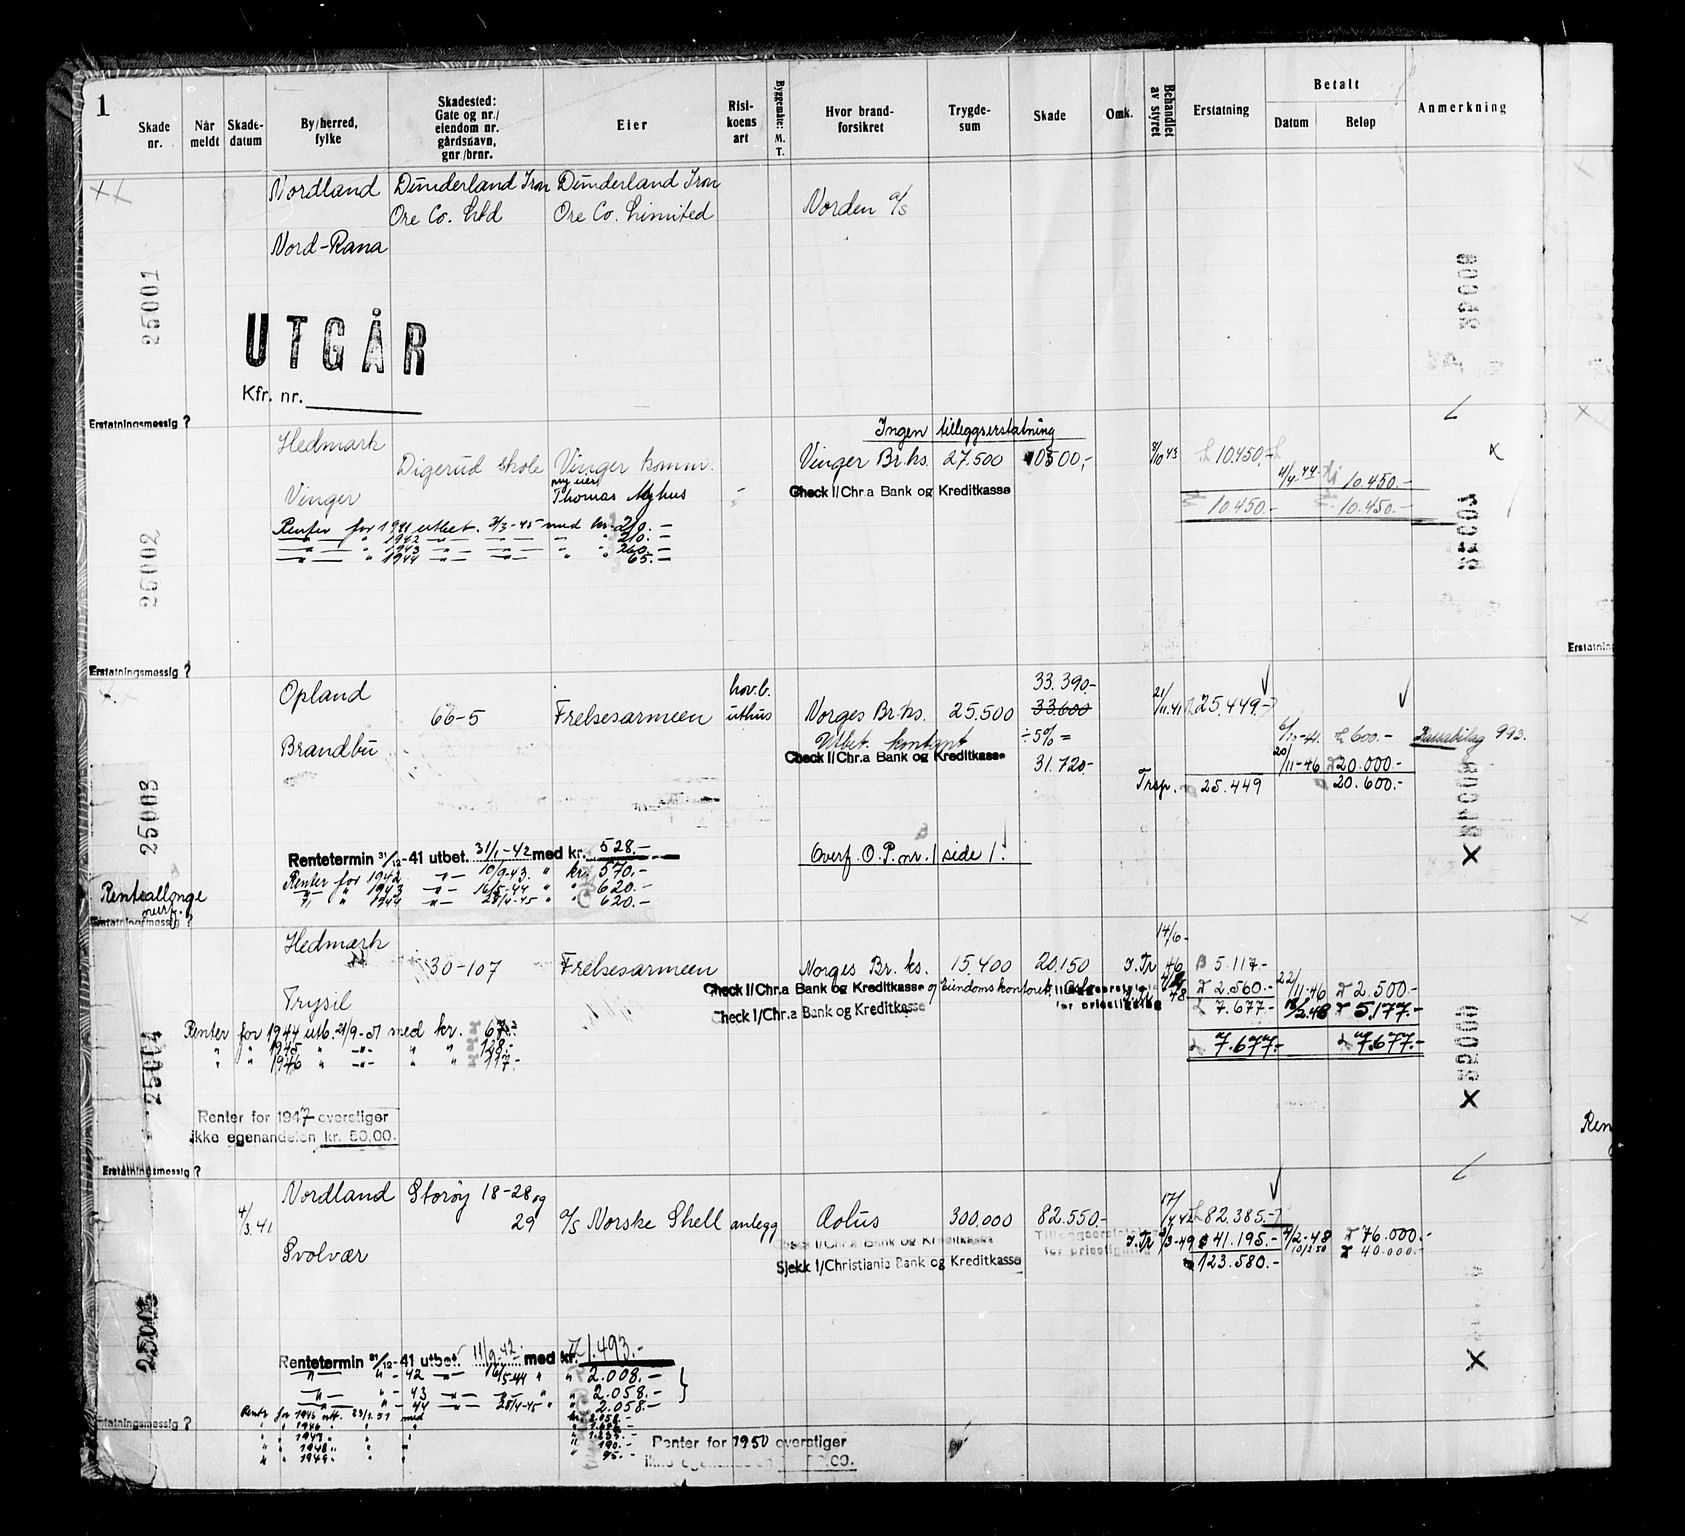 1
Skade nr.
Når meldt
Skade-datum
By/herred, fylke
Skadested: Gate og nr./ eiendom nr. gårdsnavn, gnr/brnr.
Eier
Risi-koens art
Byggemåte: M. T.
Hvor brand-forsikret
Trygde-sum
Skade
Omk.
Behandlet av styret
Erstatning
Betalt
Datum
Beløp
Anmerkning
Nordland Dunderland Iron Dunderland Iron
Ore Co. Ltd Ore Co. Limited Norden A/S
Nord-Rana
25001
UTGÅR
Kfr. nr.
Erstatningsmessig ?
Ingen tilleggserstatning
Hedmark
Digerud skole Vinger komm. Vinger Br.ks. 27.500 10500,- 8/10 43 10.450,-
ny eier
Vinger Thomas Myhus Check I/Chr.a Bank og Kreditkasse 4/4 44 10.450.-
10.450.- 10.450.-
Renter for 1941 utbet. 2/3-45 med kr. 210.-
" 1942 " 210.-
" 1943 " 260.-
" 1944 " 65.-
25002
Erstatningsmessig ?
Opland hov.b. 33.390-
66-5 Frelsesarmeen uthus Norges Br.ks. 25.500 33.600 21/11.41 25.449.-
Brandbu Utbet. kontant ÷5%= 6/10-41. 600.- Kassabilag 993.
Check I/Chr.a Bank og Kreditkasse 31.720- 20/11-46 20.000.-
Trsp. 25.449 20.600.-
25003
Rentetermin 31/12-41 utbet. 31/1-42 med kr. 528.- Overf. O.P. nr. 1 side 1.
Renter for 1942 " 10/9-43. " kr. 570.-
" " 1943 " 16/5-44 " " 620.-
" " 1944 " 28/4-45 " " 620.-
Renteallonge
Erstatningsmessig ?
Hedmark 14/6-
30-107 Frelsesarmeen Norges Br. ks. 15.400 20.150 J.Tr 46 5.117.-
Check I/Chr.a Bank og Kreditkasse og Eiendomskontoret, Oslo Tilleggserstatn. for prisstigning 48 2.560.- 22/11-46 2.500.-
Trysil Check I/Chr.a Bank og Kreditkasse 7.677.- 5.177.-
7.677.- 7.677.-
Renter for 1944 utb. 21/9-51 med kr. 67.-
" " 1945 " " " 128.-
" " 1946 " " " 117.-
25004
Renter for 1947 overstiger
ikke egenandelen kr. 50,00.
Erstatningsmessig ?
Nordland Storøy 18-28 og
4/3.41 29 A/S Norske Shell anlegg Aolus 300.000 82.550.- 17/4.42 82.385.-
Tilleggserstatn.
Check I/Chr.a Bank og Kreditkasse for prisstigning J.Tr 3/3-49 41.195.- 7/2-48 76.000.-
Svolvær Sjekk I/Christiania Bank og Kreditkasse 123.580.- 10/2 50 40.000.-
25005
Rentetermin 31/12-41 utbet. 11/9-42 med kr. 1.493.-
" " - 42 " 16/5-44 " " 2.008.-
" " - 43 " " " 2.058.-
" " - 44 " 28/4-45 " 2.058.-
Renter for 1945 utb. 23/2.51 med kr. 2.058.-
Erstatningsmessig ?
" " 1946
" " 1947
" " 1948 " 190.-
" " 1949 " 95.-
Renter for 1950 overstiger
ikke egenandelen
Erstatnin
Ren